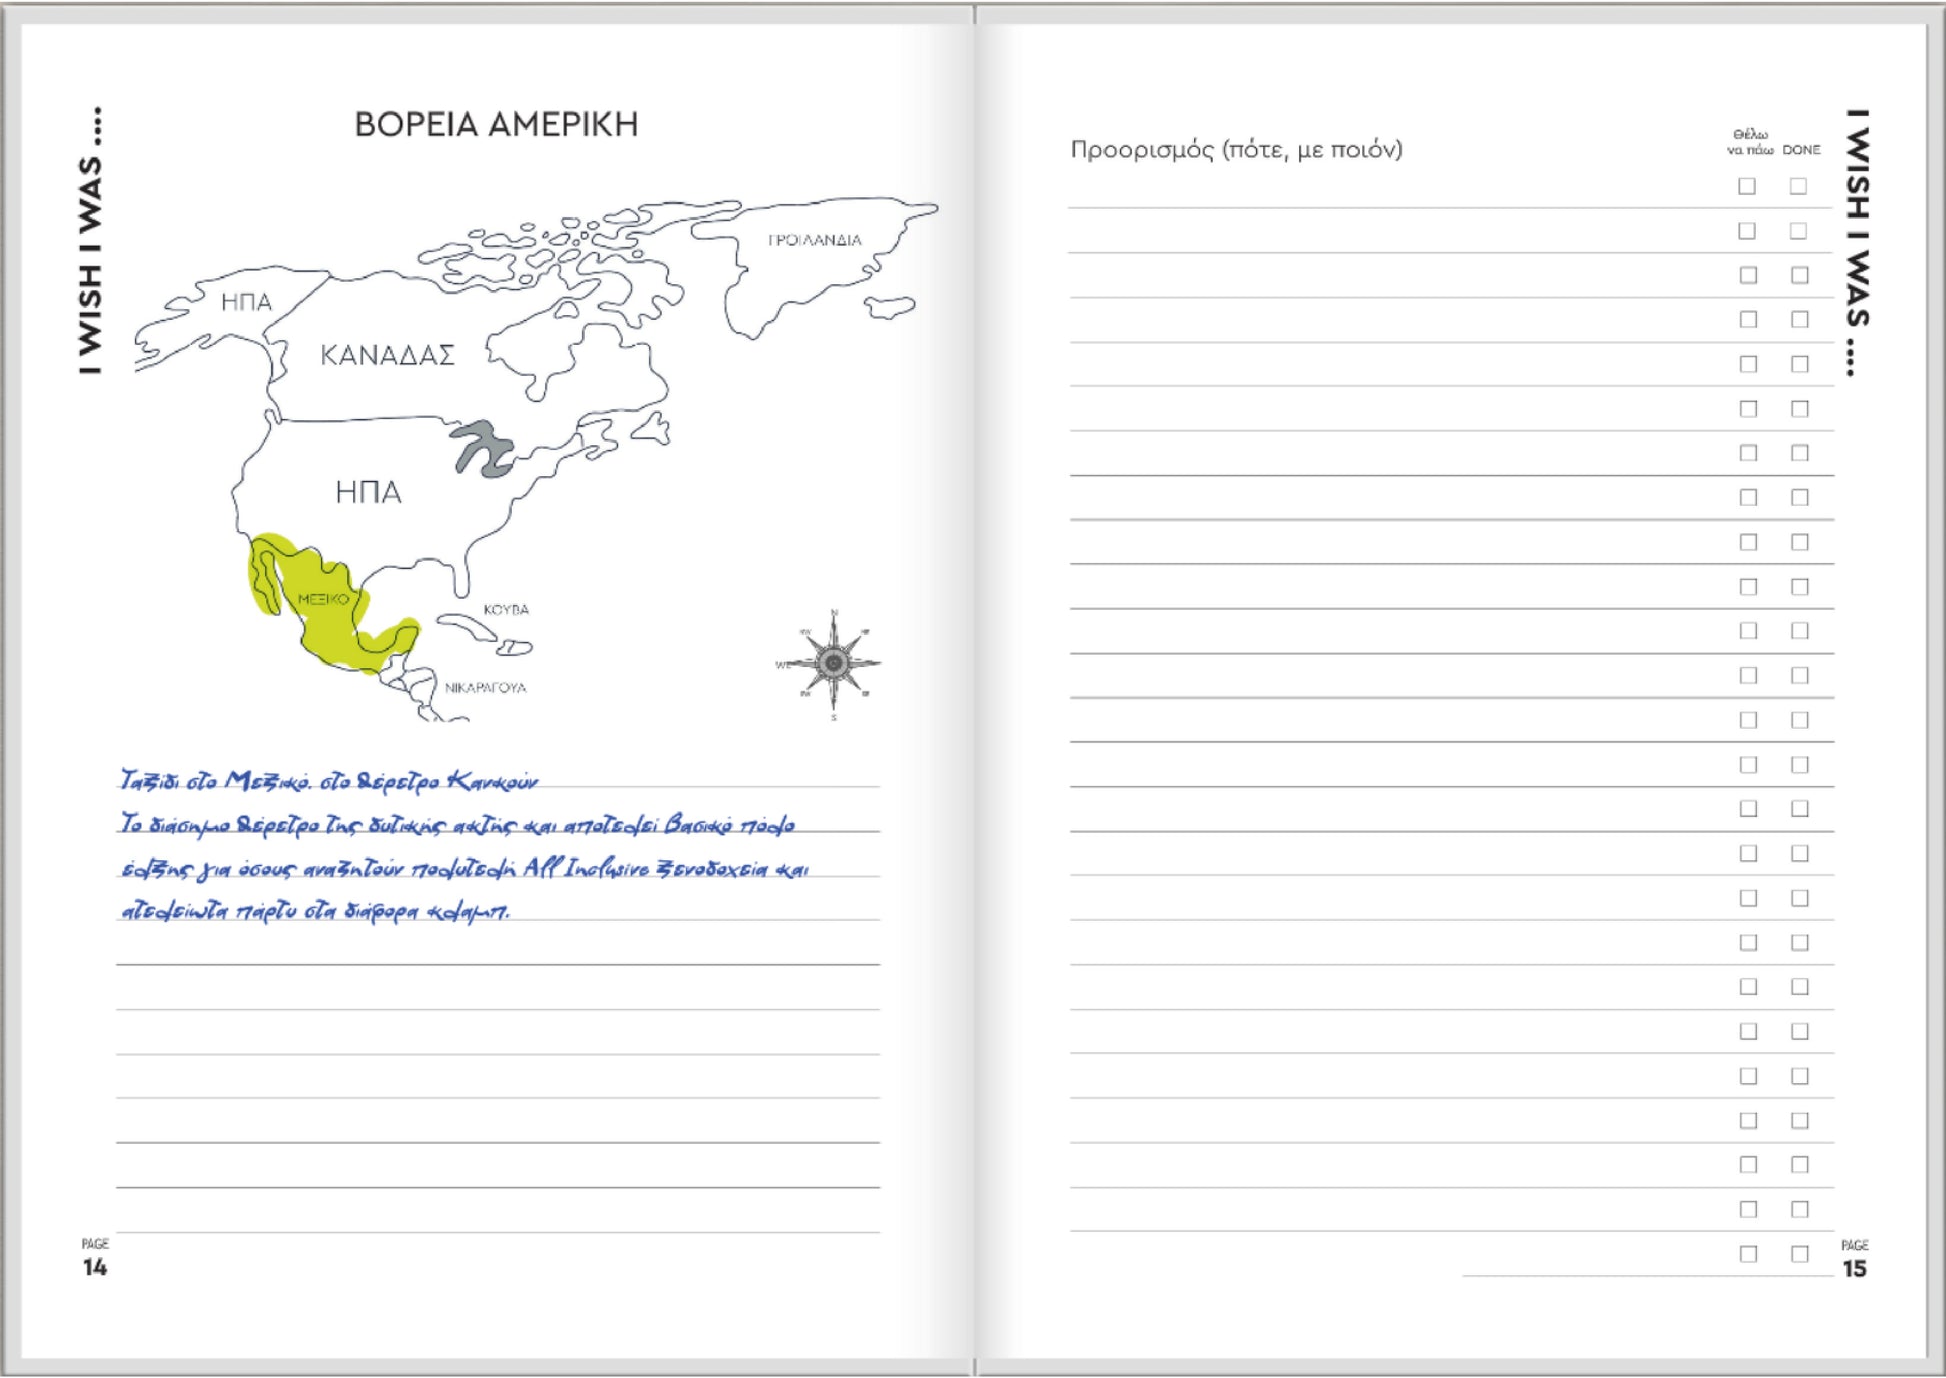 I WISH I WAS ....
ΒΟΡΕΙΑ ΑΜΕΡΙΚΗ
ΓΡΟΙΛΑΝΔΙΑ
ΗΠΑ
ΚΑΝΑΔΑΣ
ΗΠΑ
ΜΕΞΙΚΟ
ΚΟΥΒΑ
ΝΙΚΑΡΑΓΟΥΑ
N
NW NE
WE
SW SE
S
Ταξίδι στο Μεξικό. στο θέρετρο Κανκούν
Το διάσημο θέρετρο της δυτικής ακτής και αποτελεί βασικό πόλο
έλξης για όσους αναζητούν πολυτελή All Inclusive ξενοδοχεία και
ατελείωτα πάρτυ στα διάφορα κλαμπ.
PAGE
14
Προορισμός (πότε, με ποιόν)
Θέλω
να πάω DONE
I WISH I WAS ....
PAGE
15